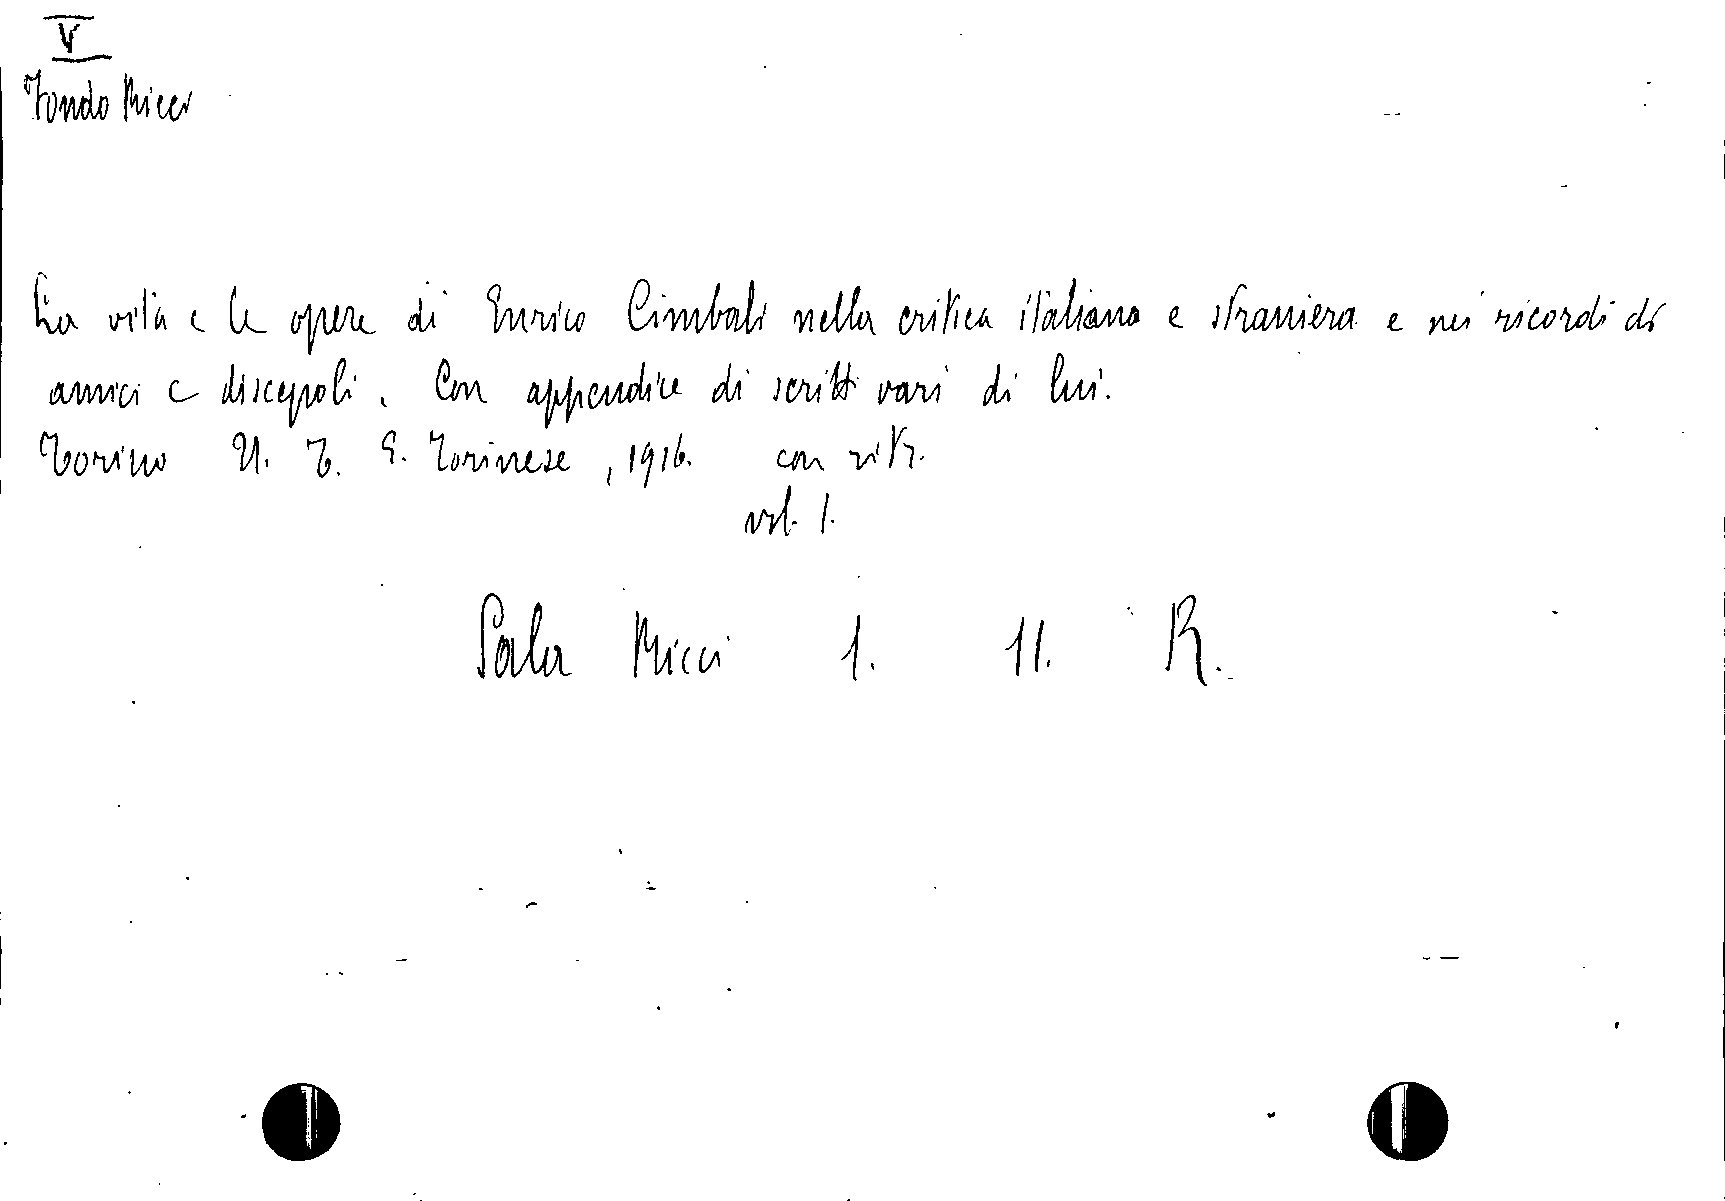 V
Fondo Ricci
La vita e le opere di Enrico Cimbali nella critica italiana e straniera e nei ricordi di
amici e discepoli. Con appendice di scritti vari di lui.
Torino U. T. E. Torinese, 1916. con ritr.
vol. 1.
Sala Ricci 1. 11. R.